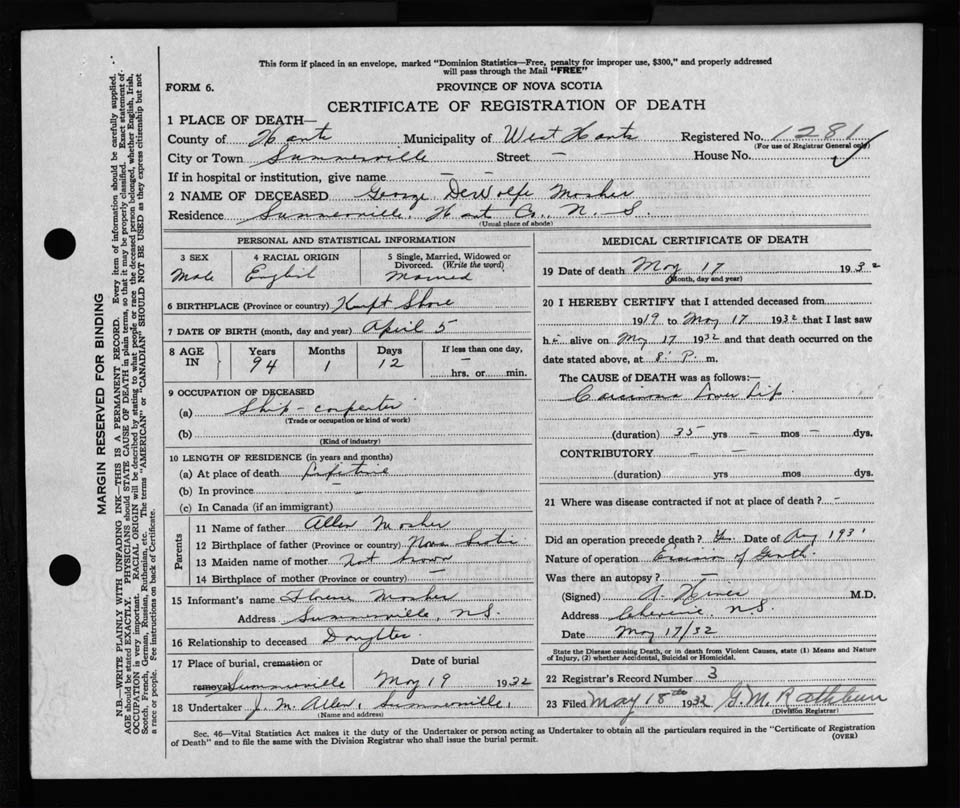 This form if placed in an envelope, marked "Dominion Statistics—Free, penalty for improper use, $300," and properly addressed
will pass through the Mail "FREE"
FORM 6.
PROVINCE OF NOVA SCOTIA
CERTIFICATE OF REGISTRATION OF DEATH
1 PLACE OF DEATH—
County of Hants Municipality of West Hants Registered No. 1281
(For use of Registrar General only)
City or Town Summerville Street — House No.
If in hospital or institution, give name — —
2 NAME OF DECEASED George DeWolfe Mosher
Residence Summerville, Hants Co., N. S.
(Usual place of abode)
PERSONAL AND STATISTICAL INFORMATION
3 SEX 4 RACIAL ORIGIN 5 Single, Married, Widowed or Divorced. (Write the word)
Male English Married
6 BIRTHPLACE (Province or country) Kempt Shore
7 DATE OF BIRTH (month, day and year) April 5
8 AGE IN Years Months Days If less than one day,
94 1 12 — hrs. or min.
9 OCCUPATION OF DECEASED
(a) Ship-carpenter
(Trade or occupation or kind of work)
(b)
(Kind of industry)
10 LENGTH OF RESIDENCE (in years and months)
(a) At place of death Lifetime
(b) In province —
(c) In Canada (if an immigrant)
Parents
11 Name of father Allen Mosher
12 Birthplace of father (Province or country) Nova Scotia
13 Maiden name of mother Not known
14 Birthplace of mother (Province or country) —
15 Informant's name Mosher
Address Summerville, N.S.
16 Relationship to deceased Daughter
17 Place of burial, cremation or Date of burial
removal Summerville May 19 1932
18 Undertaker J. M. Allen, Summerville,
(Name and address)
MEDICAL CERTIFICATE OF DEATH
19 Date of death May 17 1932
(Month, day and year)
20 I HEREBY CERTIFY that I attended deceased from
1919 to May 17 1932 that I last saw
him alive on May 17 1932 and that death occurred on the
date stated above, at 8 P. m.
The CAUSE of DEATH was as follows:—
Carcinoma Lower Lip
(duration) 35 yrs — mos — dys.
CONTRIBUTORY — —
(duration) yrs mos dys.
21 Where was disease contracted if not at place of death? —
Did an operation precede death? Yes Date of Aug 1931
Nature of operation Excision of Growth.
Was there an autopsy? —
(Signed) M.D.
Address Cheverie, N.S.
Date May 17/32
State the Disease causing Death, or in death from Violent Causes, state (1) Means and Nature
of Injury, (2) whether Accidental, Suicidal or Homicidal.
22 Registrar's Record Number 3
23 Filed May 18th 1932 G. M. Rathbun
(Division Registrar)
Sec. 46—Vital Statistics Act makes it the duty of the Undertaker or person acting as Undertaker to obtain all the particulars required in the "Certificate of Registration
of Death" and to file the same with the Division Registrar who shall issue the burial permit.
(OVER)
MARGIN RESERVED FOR BINDING
N.B.—WRITE PLAINLY WITH UNFADING INK—THIS IS A PERMANENT RECORD. Every item of information should be carefully supplied.
AGE should be stated EXACTLY. PHYSICIANS should STATE CAUSE OF DEATH in plain terms, so that it may be properly classified. Exact statement of
OCCUPATION is very important. RACIAL ORIGIN will be described by stating to what people or race the deceased person belonged, whether English, Irish,
Scotch, French, German, Russian, Ruthenian, etc. The terms "AMERICAN" or "CANADIAN" SHOULD NOT BE USED as they express citizenship but not
a race or people. See instructions on back of Certificate.